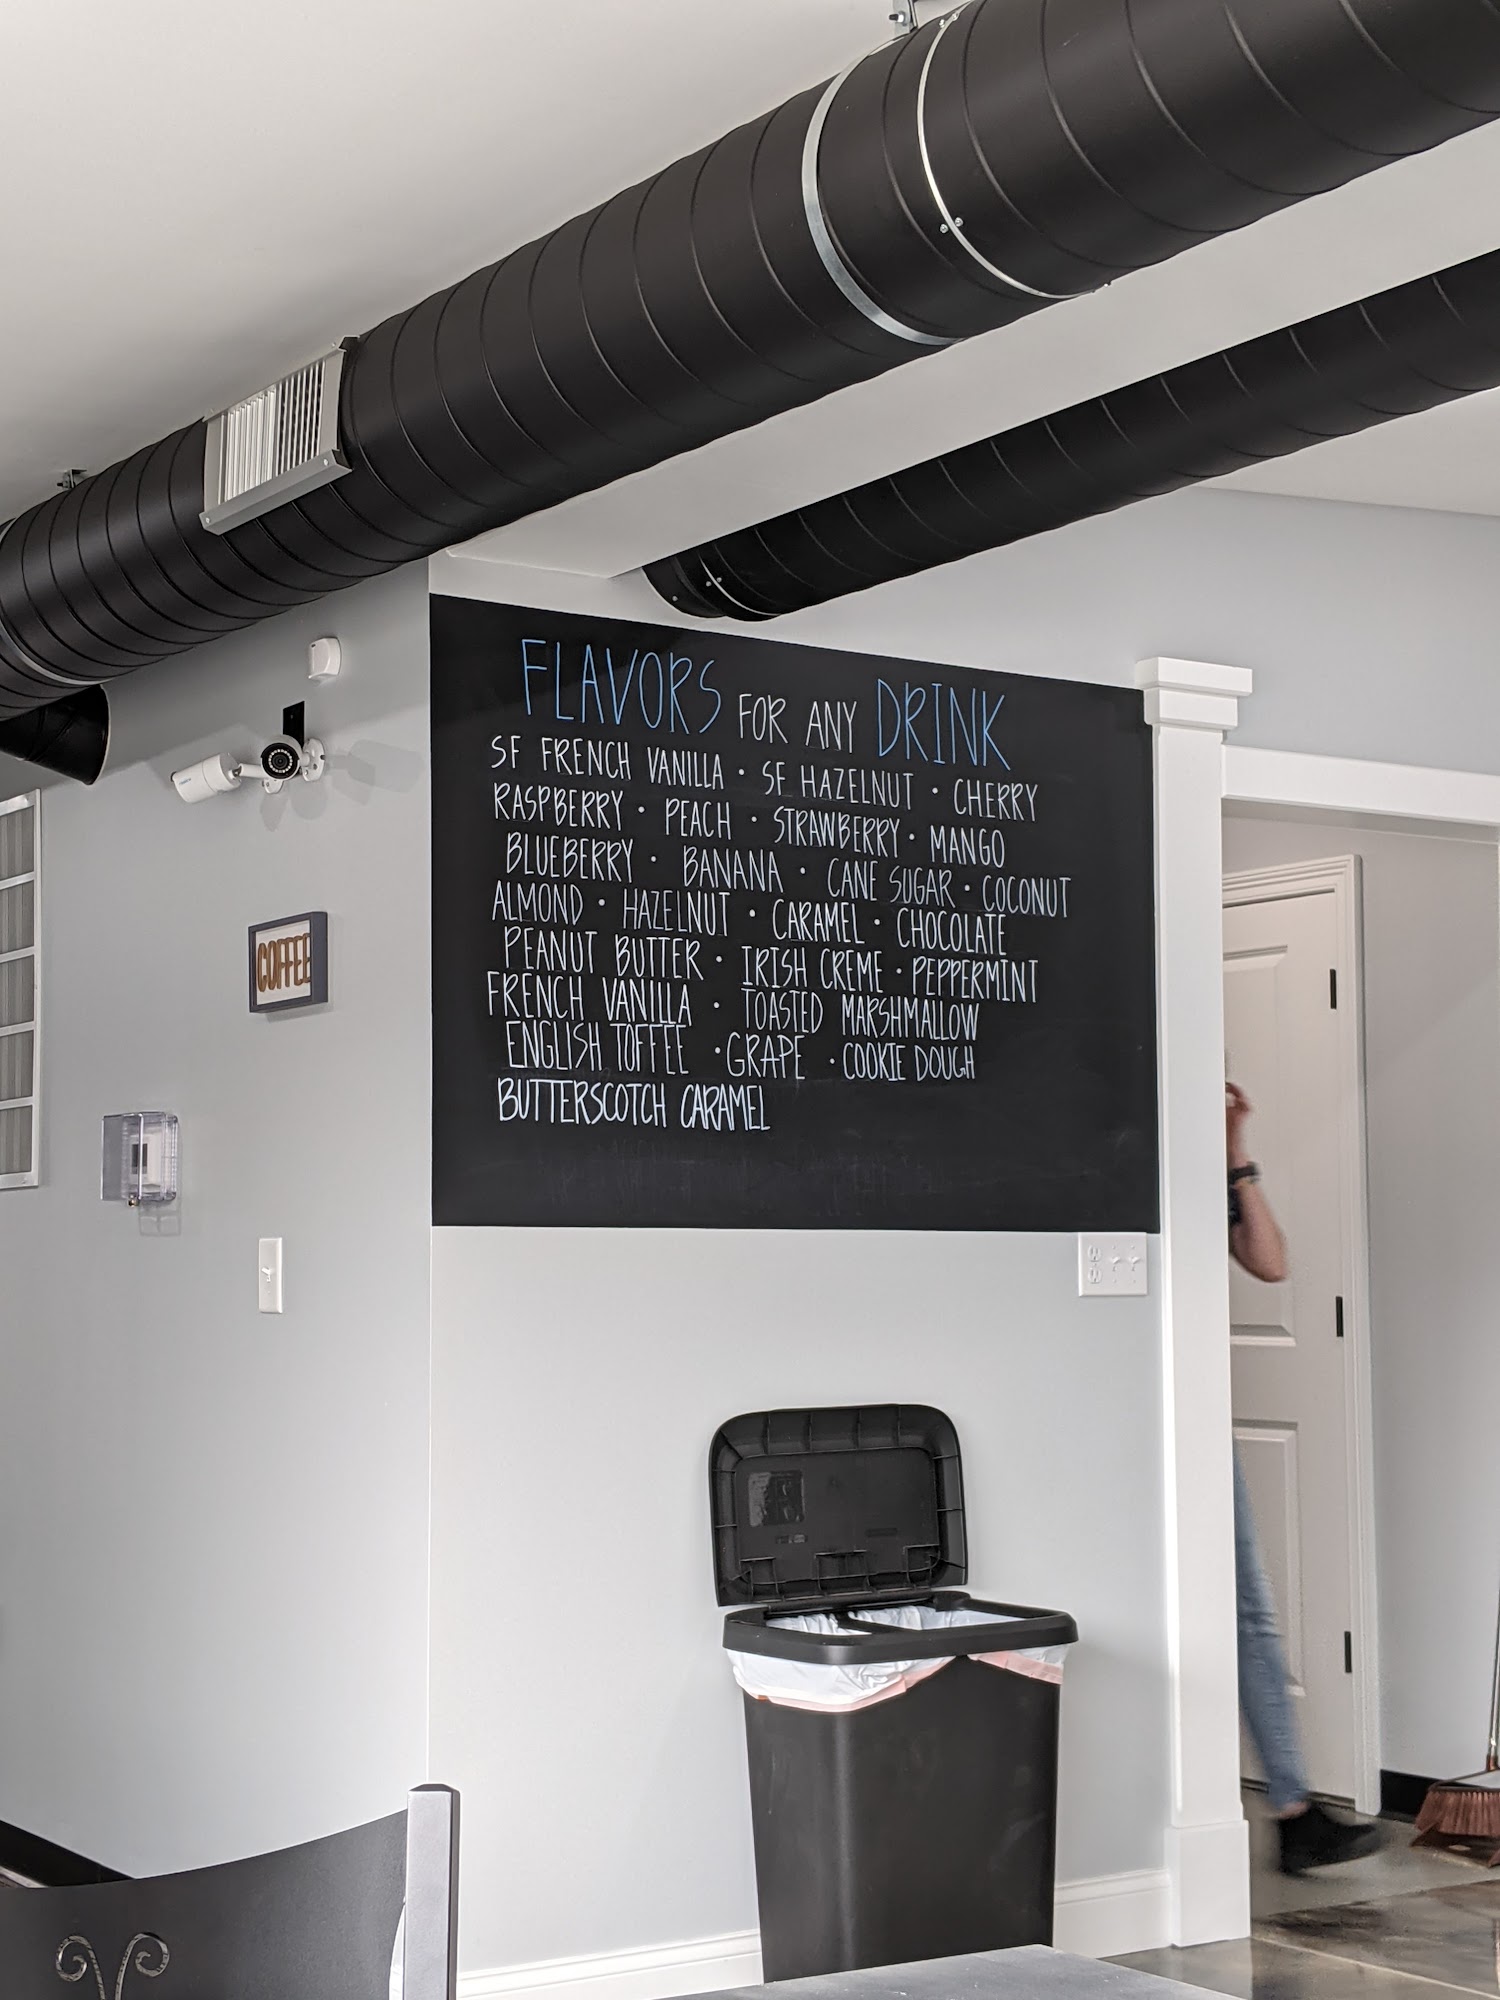 FLAVORS FOR ANY DRINK
SF FRENCH VANILLA • SF HAZELNUT • CHERRY
RASPBERRY • PEACH • STRAWBERRY • MANGO
BLUEBERRY • BANANA • CANE SUGAR • COCONUT
ALMOND • HAZELNUT • CARAMEL • CHOCOLATE
PEANUT BUTTER • IRISH CREME • PEPPERMINT
FRENCH VANILLA • TOASTED MARSHMALLOW
ENGLISH TOFFEE • GRAPE • COOKIE DOUGH
BUTTERSCOTCH CARAMEL
COFFEE